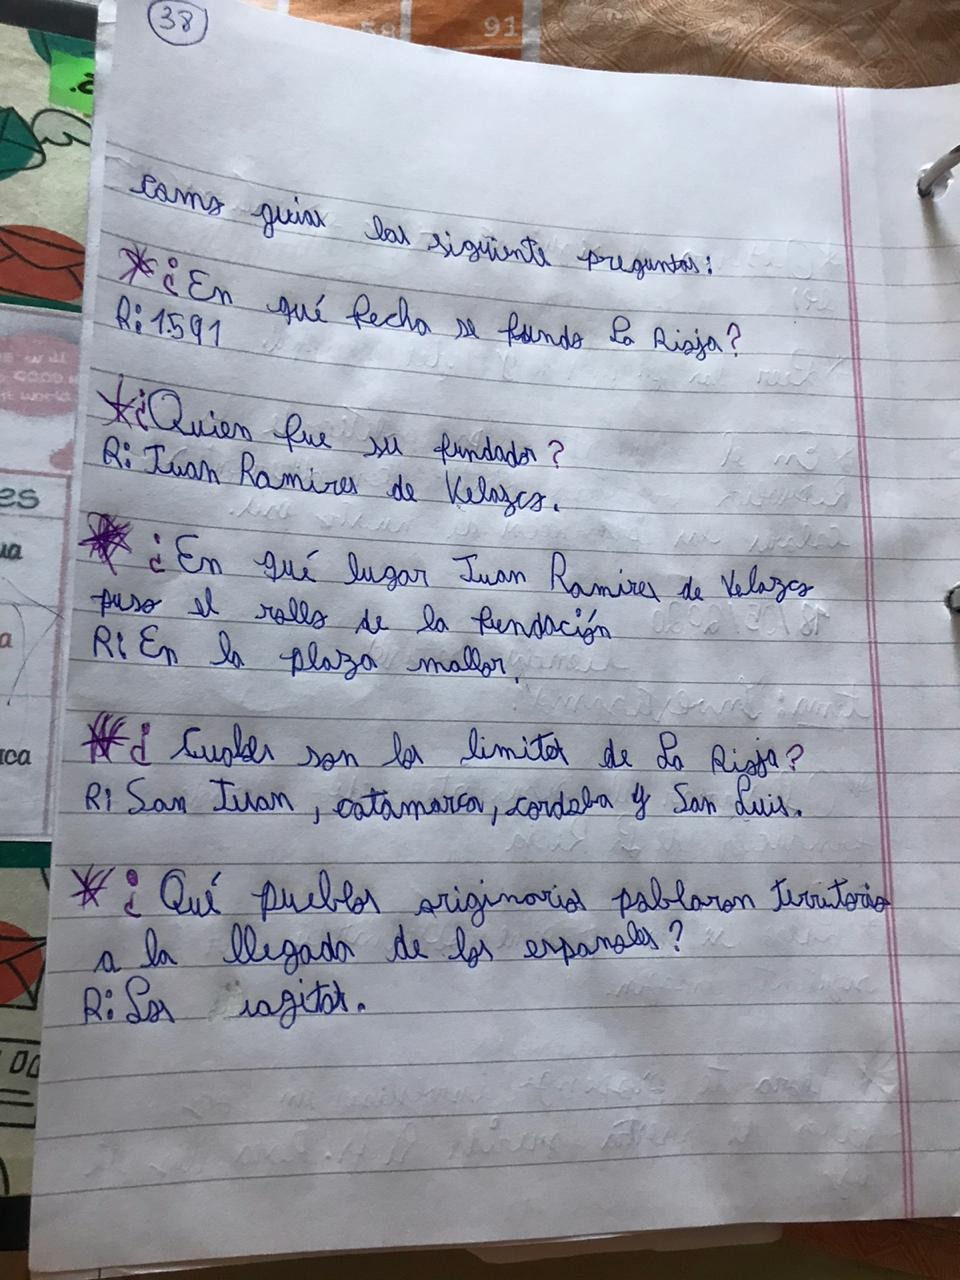 38
91
como guiar las siguiente preguntas:
¿En qué fecha se fundo La Rioja?
R: 1591
¿Quien fue su fundador?
R: Juan Ramires de Velazco.
¿En qué lugar Juan Ramires de Velazco
puso el rollo de la fundación
R: En la plaza mallor.
¿Cuales son los limites de La Rioja?
R: San Juan, catamarca, cordoba y San Luis.
¿Qué pueblos originarios poblaron territorio
a la llegada de los españoles?
R: Los
es
ua
a
ica